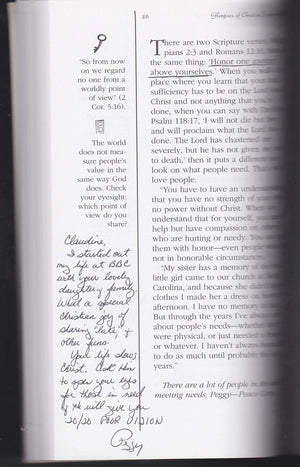 "So from now
on we regard
no one from
a worldly point
of view" (2
Cor. 5:16).
The world
does not mea-
sure people's
value in the
same way God
does. Check
your eyesight:
which point of
view do you
share?
Claudine,
I started out
my life at BBC
with your lovely
daughter's family
What a special
Christian joy of
sharing "cake," &
other funs.
Your life shows
Christ. Ask Him
to open your eyes
for those in need
& He will give you
20/20 POOR VISION
Peggy
80
Glimpses of Christian
There are two Scripture verses,
pians 2:3 and Romans 12:10,
the same thing: 'Honor one
above yourselves.' When you
place where you learn that your
sufficiency has to be on the Lord
Christ and not anything that you
done, when you can say with
Psalm 118:17, 'I will not die but
and will proclaim what the Lord
done. The Lord has chastened me
severely, but he has not given me
to death,' then it puts a different
look on what people need. That
love people.
"You have to have an understand
that you have no strength of your
no power without Christ. When
understand that for yourself, you
help but have compassion on others
who are hurting or needy. You
them with honor—even people
not in honorable circumstances.
"My sister has a memory of
little girl came to our church at
Carolina, and because she didn't
clothes I made her a dress on
afternoon. I have no memory
But through the years I've always
about people's needs—whether
were physical, or just needed a
or whatever. I haven't always
to do as much until probably the
years."
There are a lot of people in
meeting needs, Peggy—Peace